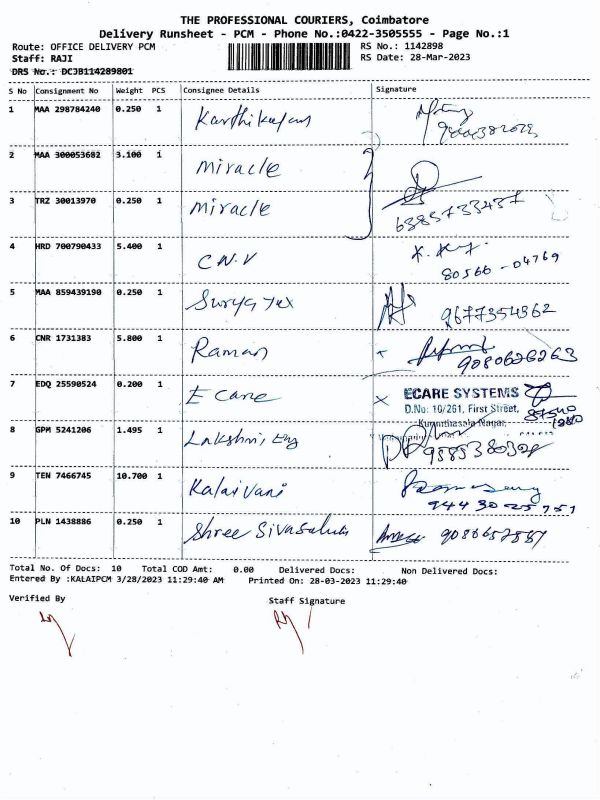 THE PROFESSIONAL COURIERS, Coimbatore
Delivery Runsheet - PCM - Phone No.:0422-3505555 - Page No.:1
Route: OFFICE DELIVERY PCM RS No.: 1142898
Staff: RAJI RS Date: 28-Mar-2023
DRS No.: DCJB114289801
S No Consignment No Weight PCS Consignee Details Signature
1 MAA 298784240 0.250 1 Karthikeyan
2 MAA 300053682 3.100 1 miracle
3 TRZ 30013970 0.250 1 miracle
6385733437
4 HRD 700790433 5.400 1 C N.V
80566-04769
5 MAA 859439190 0.250 1 Surya Tex
9677354362
6 CNR 1731383 5.800 1 Raman
9080626263
7 EDQ 25590524 0.200 1 E Care ECARE SYSTEMS
D.No: 10/261, First Street,
8 GPM 5241206 1.495 1 Lakshmi Eng
9 TEN 7466745 10.700 1 Kalaivani
944 30 25751
10 PLN 1438886 0.250 1 Shree
Total No. Of Docs: 10 Total COD Amt: 0.00 Delivered Docs: Non Delivered Docs:
Entered By :KALAIPCM 3/28/2023 11:29:40 AM Printed On: 28-03-2023 11:29:40
Verified By Staff Signature